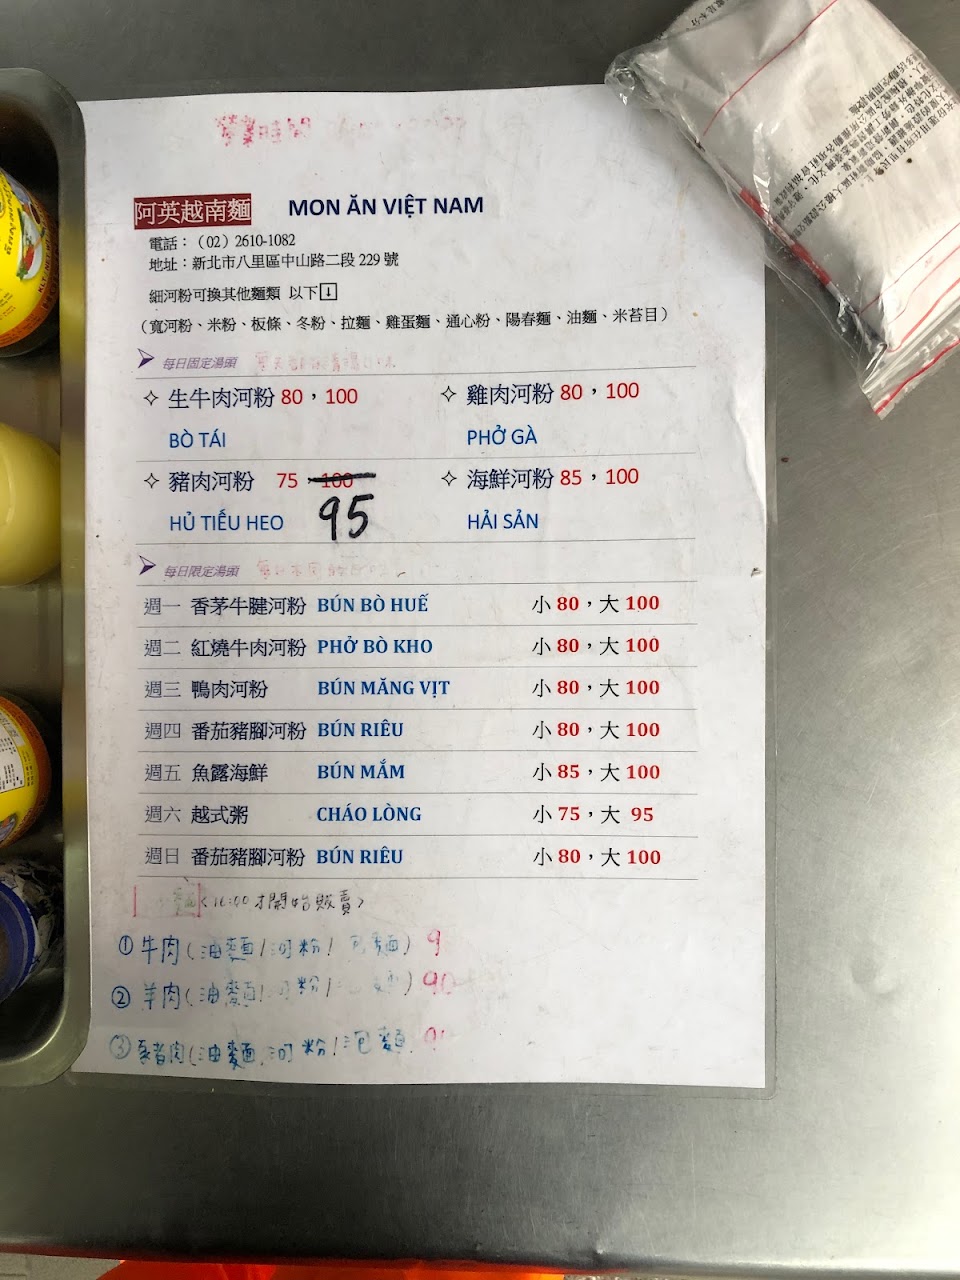 阿英越南麵 MON ĂN VIỆT NAM
電話：（02）2610-1082
地址：新北市八里區中山路二段 229 號
細河粉可換其他麵類 以下↓
（寬河粉、米粉、板條、冬粉、拉麵、雞蛋麵、通心粉、陽春麵、油麵、米苔目）
每日固定湯頭
生牛肉河粉 80，100 雞肉河粉 80，100
BÒ TÁI PHỞ GÀ
豬肉河粉 75，100 海鮮河粉 85，100
HỦ TIẾU HEO 95 HẢI SẢN
每日限定湯頭
週一 香茅牛腱河粉 BÚN BÒ HUẾ 小 80，大 100
週二 紅燒牛肉河粉 PHỞ BÒ KHO 小 80，大 100
週三 鴨肉河粉 BÚN MĂNG VỊT 小 80，大 100
週四 番茄豬腳河粉 BÚN RIÊU 小 80，大 100
週五 魚露海鮮 BÚN MẮM 小 85，大 100
週六 越式粥 CHÁO LÒNG 小 75，大 95
週日 番茄豬腳河粉 BÚN RIÊU 小 80，大 100
<16:00才開始販賣>
① 牛肉(油麵/河粉/泡麵) 9
② 羊肉(油麵/河粉/泡麵) 90
③ 豬肉(油麵/河粉/泡麵